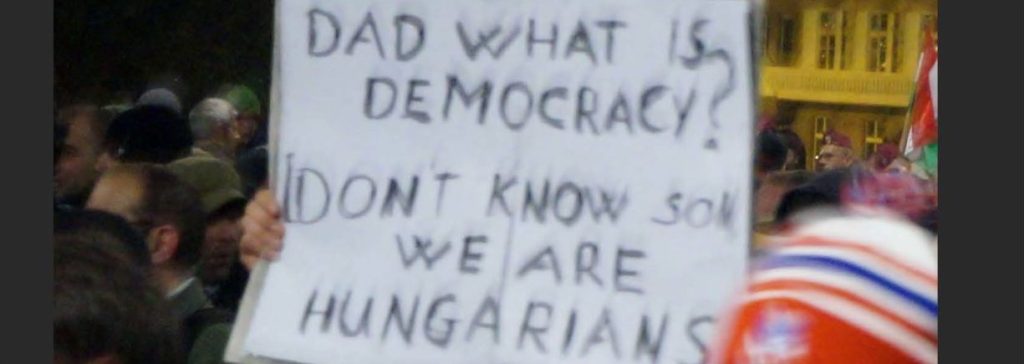 DAD WHAT IS
DEMOCRACY?
I DON'T KNOW SON
WE ARE
HUNGARIANS